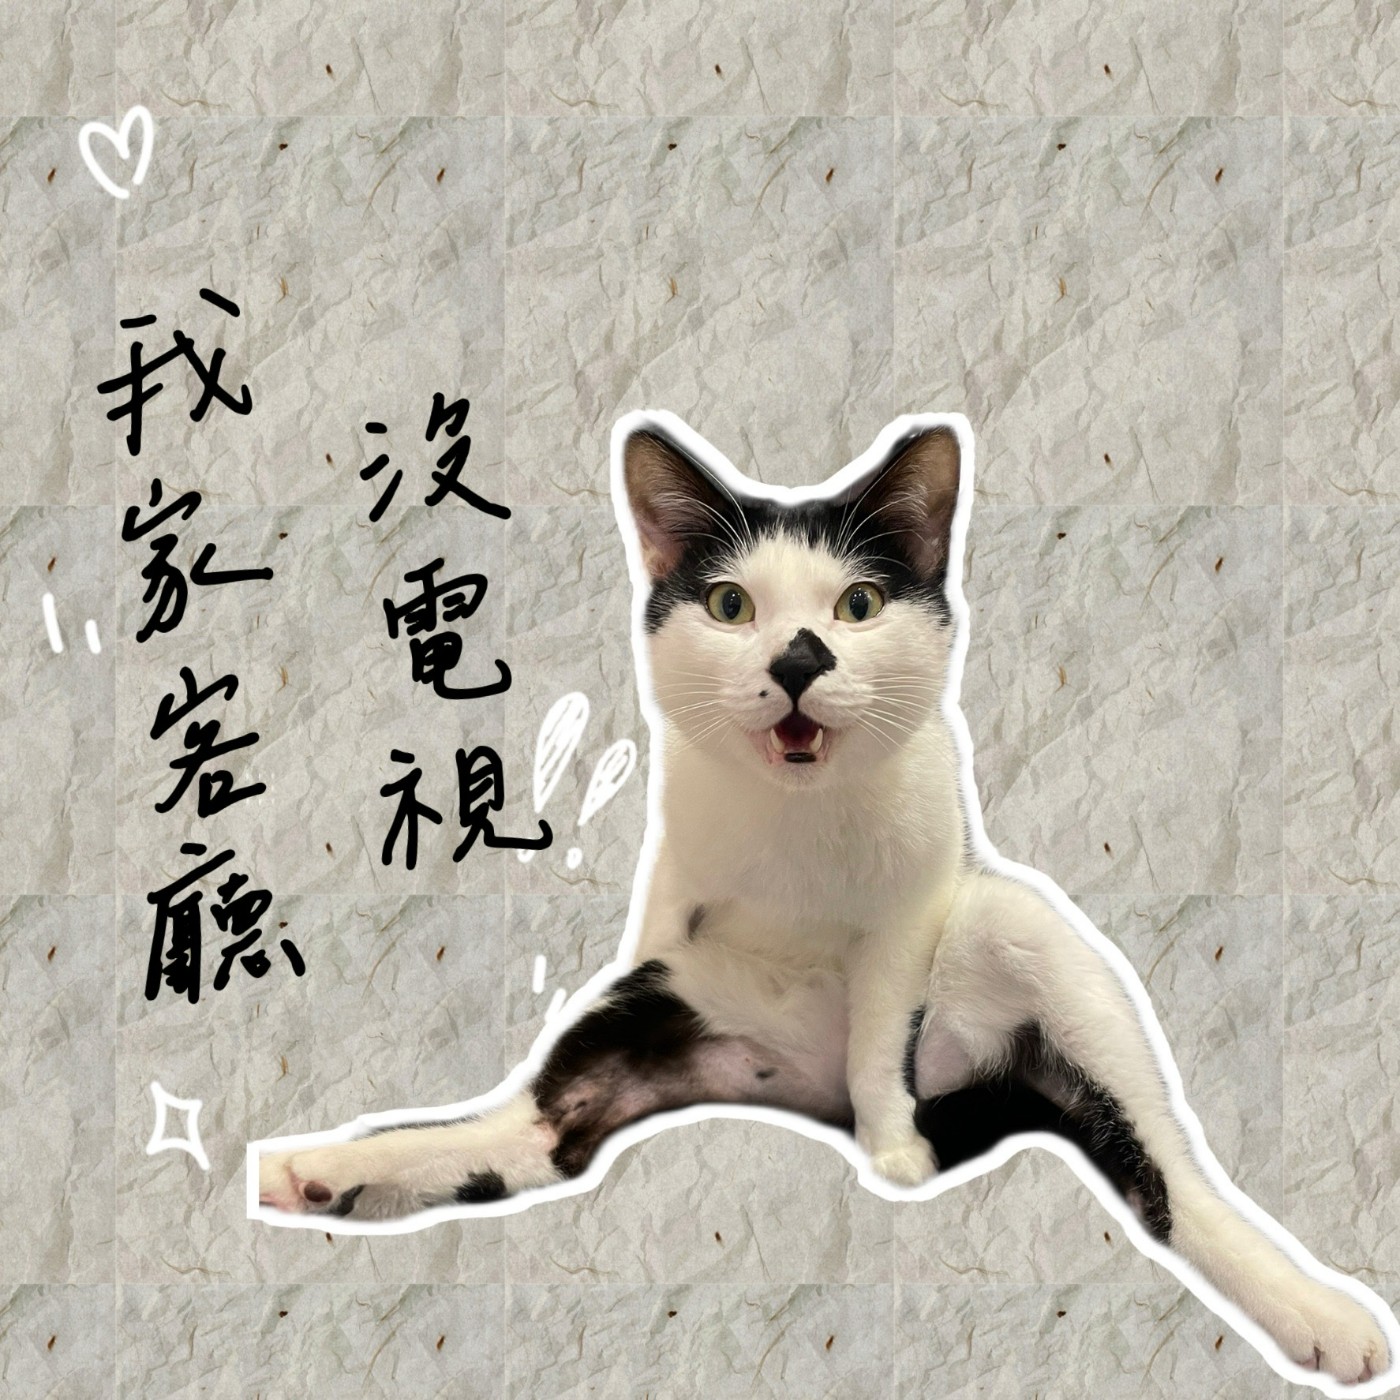 我家客廳
沒電視